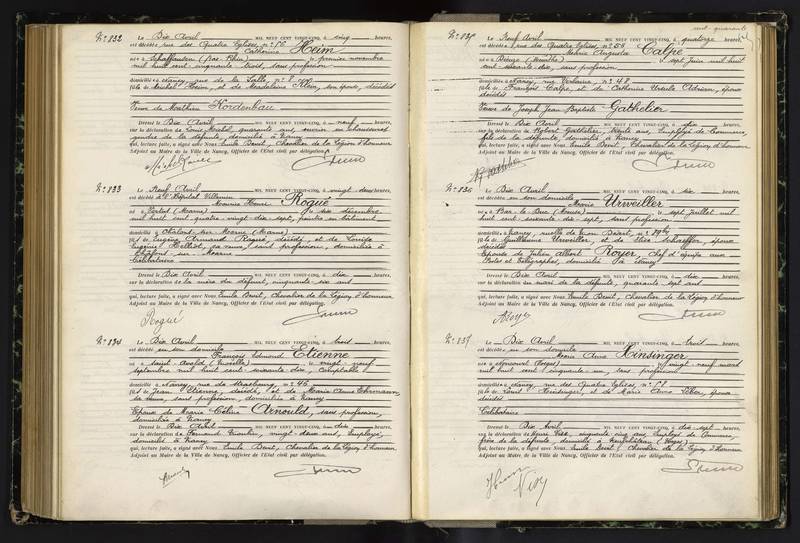 N° 832
Le Dix Avril MIL NEUF CENT VINGT-CINQ, à cinq heures,
est décédée rue des Quatre Eglises, n° 56 Catherine Heim
née à Schaffhausen (Bas-Rhin) le premier novembre
mil huit cent, sans profession
domiciliée à Nancy, rue de la Salle, n° 8
fille de Michel Heim, et de Magdeleine Klein, son épouse, décédés
Veuve de Matthieu Kordenbau
Dressé le Dix Avril MIL NEUF CENT VINGT-CINQ, à neuf heures,
sur la déclaration de Louis Michel, quarante ans, ouvrier en chaussures
gendre de la défunte, domicilié à Nancy
qui, lecture faite, a signé avec Nous Emile Benit, Chevalier de la Légion d'honneur
Adjoint au Maire de la Ville de Nancy, Officier de l'Etat civil par délégation.
N° 833
Le Neuf Avril MIL NEUF CENT VINGT-CINQ, à vingt deux heures,
est décédé à l'Hôpital Villemin Maurice Henri Rogué
né à Vertus (Marne) le dix décembre
mil huit cent quatre vingt dix sept, peintre en bâtiment
domicilié à Châlons sur Marne (Marne)
fils de Eugène Armand Rogué, décédé, et de
sa veuve, sans profession, domiciliée à
Châlons sur Marne
Célibataire
Dressé le Dix Avril MIL NEUF CENT VINGT-CINQ, à dix heures,
sur la déclaration de la mère du défunt, cinquante six ans
qui, lecture faite, a signé avec Nous Emile Benit, Chevalier de la Légion d'honneur
Adjoint au Maire de la Ville de Nancy, Officier de l'Etat civil par délégation.
Rogué
N° 834
Le Dix Avril MIL NEUF CENT VINGT-CINQ, à trois heures,
est décédé en son domicile François Edmond Etienne
né à Saint Avold (Moselle) le vingt neuf
septembre mil huit cent soixante dix, comptable
domicilié à Nancy, rue de Strasbourg, n° 46
fils de Jean Etienne, décédé, et de Marie Anne Ehrmann,
sa veuve, sans profession, domiciliée à Nancy
Epoux de Marie Célina Arnould, sans profession,
domiciliée à Nancy
Dressé le Dix Avril MIL NEUF CENT VINGT-CINQ, à dix heures,
sur la déclaration de Fernand, vingt deux ans, employé,
domicilié à Nancy
qui, lecture faite, a signé avec Nous Emile Benit, Chevalier de la Légion d'honneur
Adjoint au Maire de la Ville de Nancy, Officier de l'Etat civil par délégation.
N° 835
Le Neuf Avril MIL NEUF CENT VINGT-CINQ, à quatorze heures,
est décédée rue des Quatre Eglises, n° 54 Marie Augusta Calpe
née à (Meurthe) le sept juin mil huit
cent soixante dix, sans profession
domiciliée à Nancy, rue Verlaine, n° 48
fille de François Calpe, et de Catherine Ursule Adrian, époux
décédés
Veuve de Joseph Jean Baptiste Gathelier
Dressé le Dix Avril MIL NEUF CENT VINGT-CINQ, à dix heures,
sur la déclaration de Robert Gathelier, trente ans, Employé de Commerce,
fils de la défunte, domicilié à Nancy
qui, lecture faite, a signé avec Nous Emile Benit, Chevalier de la Légion d'honneur
Adjoint au Maire de la Ville de Nancy, Officier de l'Etat civil par délégation.
N° 836
Le Dix Avril MIL NEUF CENT VINGT-CINQ, à dix heures,
est décédée en son domicile Marie Urweiller
née à Bar-le-Duc (Meuse) le sept juillet mil
huit cent soixante dix sept, sans profession
domiciliée à Nancy, ruelle de
fille de Guillaume Urweiller, et de Elisa Schaeffer, époux
décédés
Epouse de Julien Albert Royer, chef d'équipe aux
Postes et Télégraphes, domicilié à Nancy
Dressé le Dix Avril MIL NEUF CENT VINGT-CINQ, à dix heures,
sur la déclaration du mari de la défunte, quarante sept ans
qui, lecture faite, a signé avec Nous Emile Benit, Chevalier de la Légion d'honneur
Adjoint au Maire de la Ville de Nancy, Officier de l'Etat civil par délégation.
N° 837
Le Dix Avril MIL NEUF CENT VINGT-CINQ, à trois heures,
est décédée en son domicile Marie Anne Hinsinger
née à (Vosges) le vingt neuf mars
mil huit cent cinquante un, sans profession
domiciliée à Nancy, rue des Quatre Eglises, n°
fille de Louis Hinsinger, et de Marie Anne, époux
décédés
Célibataire
Dressé le Dix Avril MIL NEUF CENT VINGT-CINQ, à dix sept heures,
sur la déclaration de Henri, cinquante cinq ans, Employé de Commerce,
domicilié à Neufchâteau (Vosges)
qui, lecture faite, a signé avec Nous Emile Benit, Chevalier de la Légion d'honneur
Adjoint au Maire de la Ville de Nancy, Officier de l'Etat civil par délégation.